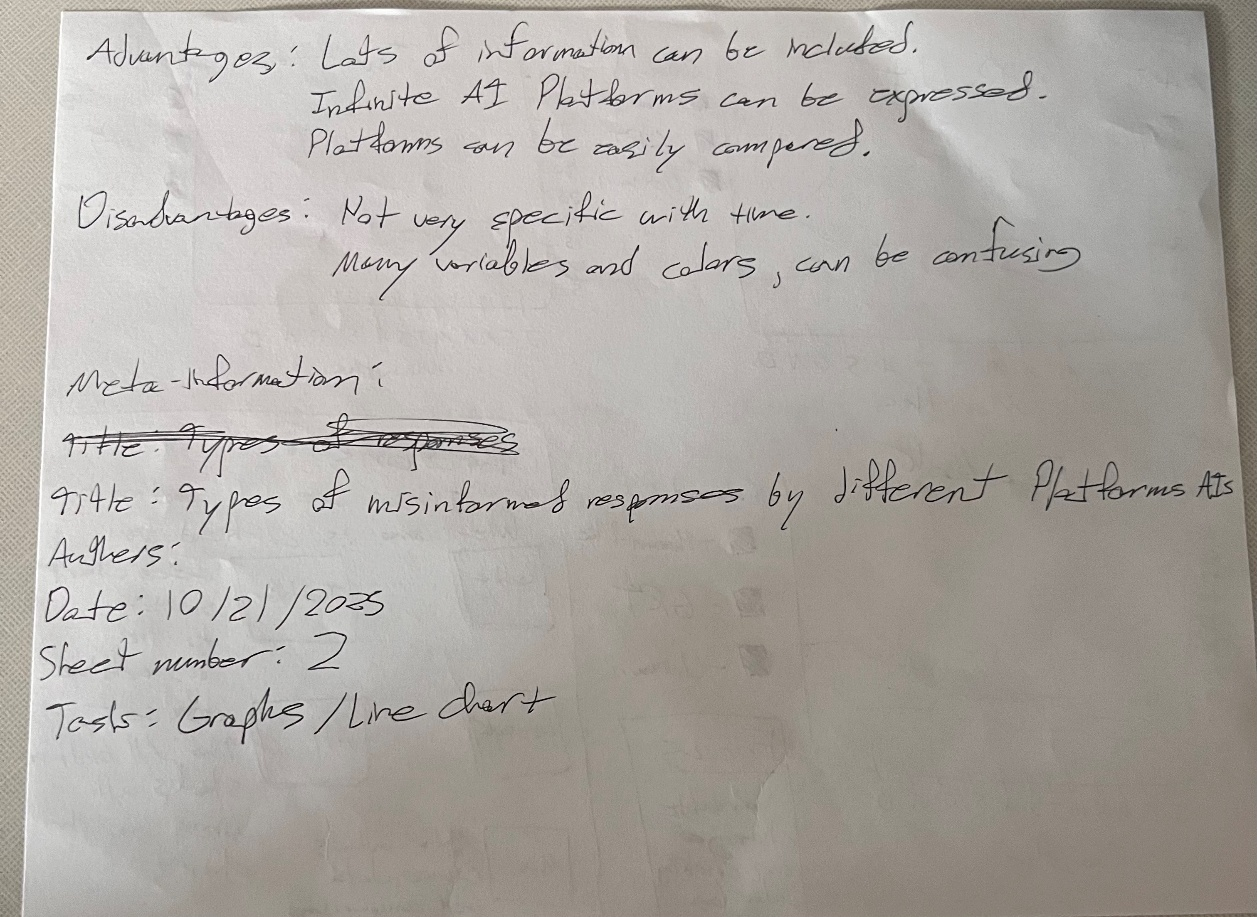 Advantages: Lots of information can be included.
Infinite AI Platforms can be expressed.
Platforms can be easily compared.
Disadvantages: Not very specific with time.
Many variables and colors, can be confusing
Meta-Information:
Title: Types of responses
Title: Types of misinformed responses by different Platforms AIs
Authers:
Date: 10/21/2025
Sheet number: 2
Tasks: Graphs/Line chart